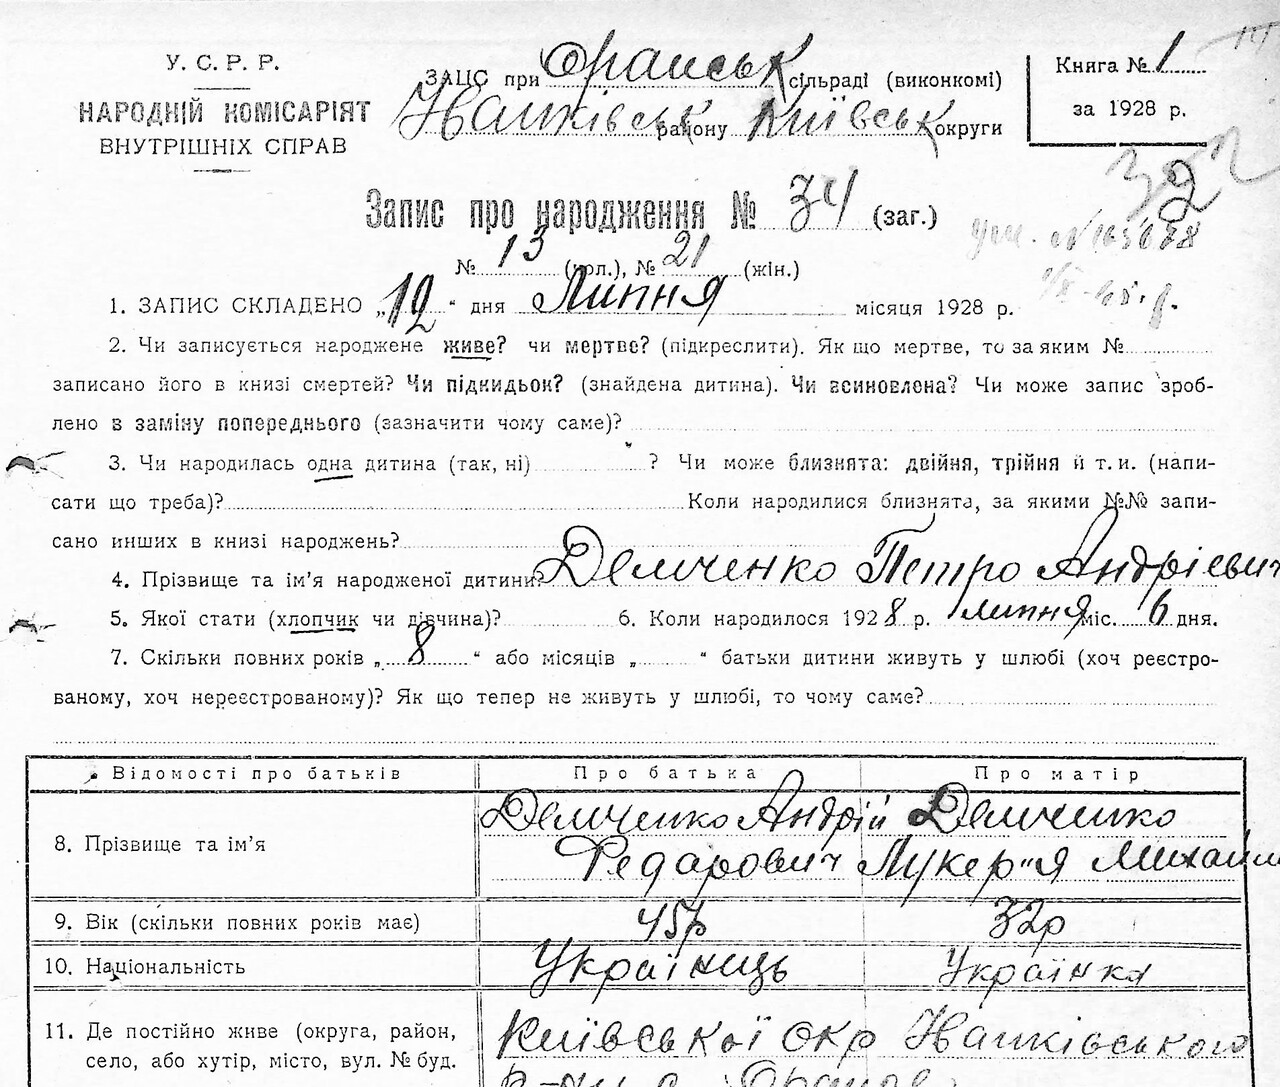 У. С. Р. Р.
НАРОДНІЙ КОМІСАРІЯТ
ВНУТРІШНІХ СПРАВ
ЗАЦС при Оранськ сільраді (виконкомі)
Хапківськ району Київськ округи
Книга № 1
за 1928 р.
2
Запис про народження № 34 (заг.)
№ 13 (чол.), № 21 (жін.)
1. ЗАПИС СКЛАДЕНО „12“ дня Липня місяця 1928 р.
2. Чи записується народжене живе? чи мертве? (підкреслити). Як що мертве, то за яким №
записано його в книзі смертей? Чи підкидьок? (знайдена дитина). Чи всиновлена? Чи може запис зроб-
лено в заміну попереднього (зазначити чому саме)?
3. Чи народилась одна дитина (так, ні) ? Чи може близнята: двійня, трійня й т. и. (напи-
сати що треба)? Коли народилися близнята, за якими №№ запи-
сано инших в книзі народжень?
4. Прізвище та ім'я народженої дитини? Демченко Петро Андрієвич
5. Якої стати (хлопчик чи дівчина)? 6. Коли народилося 1928 р. липня міс. 6 дня.
7. Скільки повних років „8“ або місяців „ “ батьки дитини живуть у шлюбі (хоч реєстро-
ваному, хоч нереєстрованому)? Як що тепер не живуть у шлюбі, то чому саме?
Відомості про батьків Про батька Про матір
8. Прізвище та ім'я Демченко Андрій Федарович Демченко Лукер"я Михайл
9. Вік (скільки повних років має) 45р 32р
10. Національність Українець Українка
11. Де постійно живе (округа, район,
село, або хутір, місто, вул. № буд.
Київської окр Хапківського
р-ну с. Оране